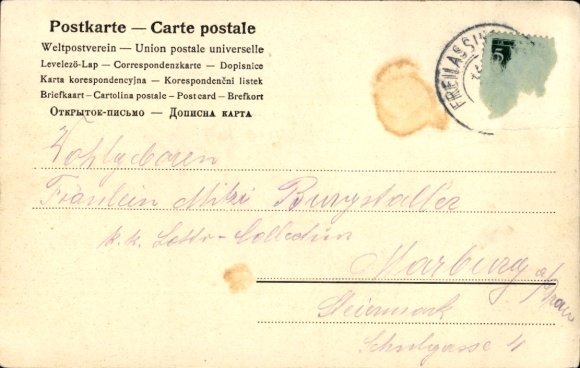 Postkarte — Carte postale
Weltpostverein — Union postale universelle
Levelező-Lap — Correspondenzkarte — Dopisnice
Karta korespondencyjna — Korespondenčni listek
Briefkaart — Cartolina postale — Postcard — Brefkort
Открытое-письмо — Дописна карта
FREILASSIN
5
Wohlgeboren
Fräulein Mitzi Burgstaller
k. k. Lotto-Collectur
Marburg a/Drau
Steiermark
Schulgasse 4